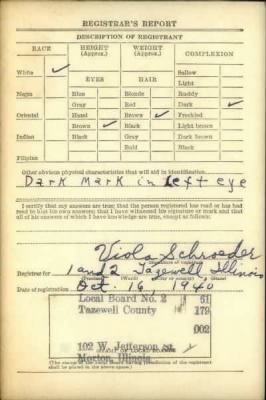 REGISTRAR'S REPORT
DESCRIPTION OF REGISTRANT
RACE
HEIGHT
(Approx.)
WEIGHT
(Approx.)
COMPLEXION
White ✓
Sallow
Light
EYES
HAIR
Negro
Blue
Blonde
Ruddy
Gray
Red
Dark ✓
Oriental
Hazel
Brown ✓
Freckled
Brown ✓
Black
Light brown
Indian
Black
Gray
Dark brown
Bald
Black
Filipino
Other obvious physical characteristics that will aid in identification
Dark Mark in left eye
I certify that my answers are true; that the person registered has read or has had
read to him his own answers; that I have witnessed his signature or mark and that
all of his answers of which I have knowledge are true, except as follows:
Viola Schroeder
Registrar for 1 and 2 Tazewell, Illinois
Date of registration Oct. 16, 1940
Local Board No. 2 61
Tazewell County 179
002
102 W. Jefferson St.
Morton, Illinois
(The stamp of the Local Board having jurisdiction of the registrant
shall be placed in the above space.)